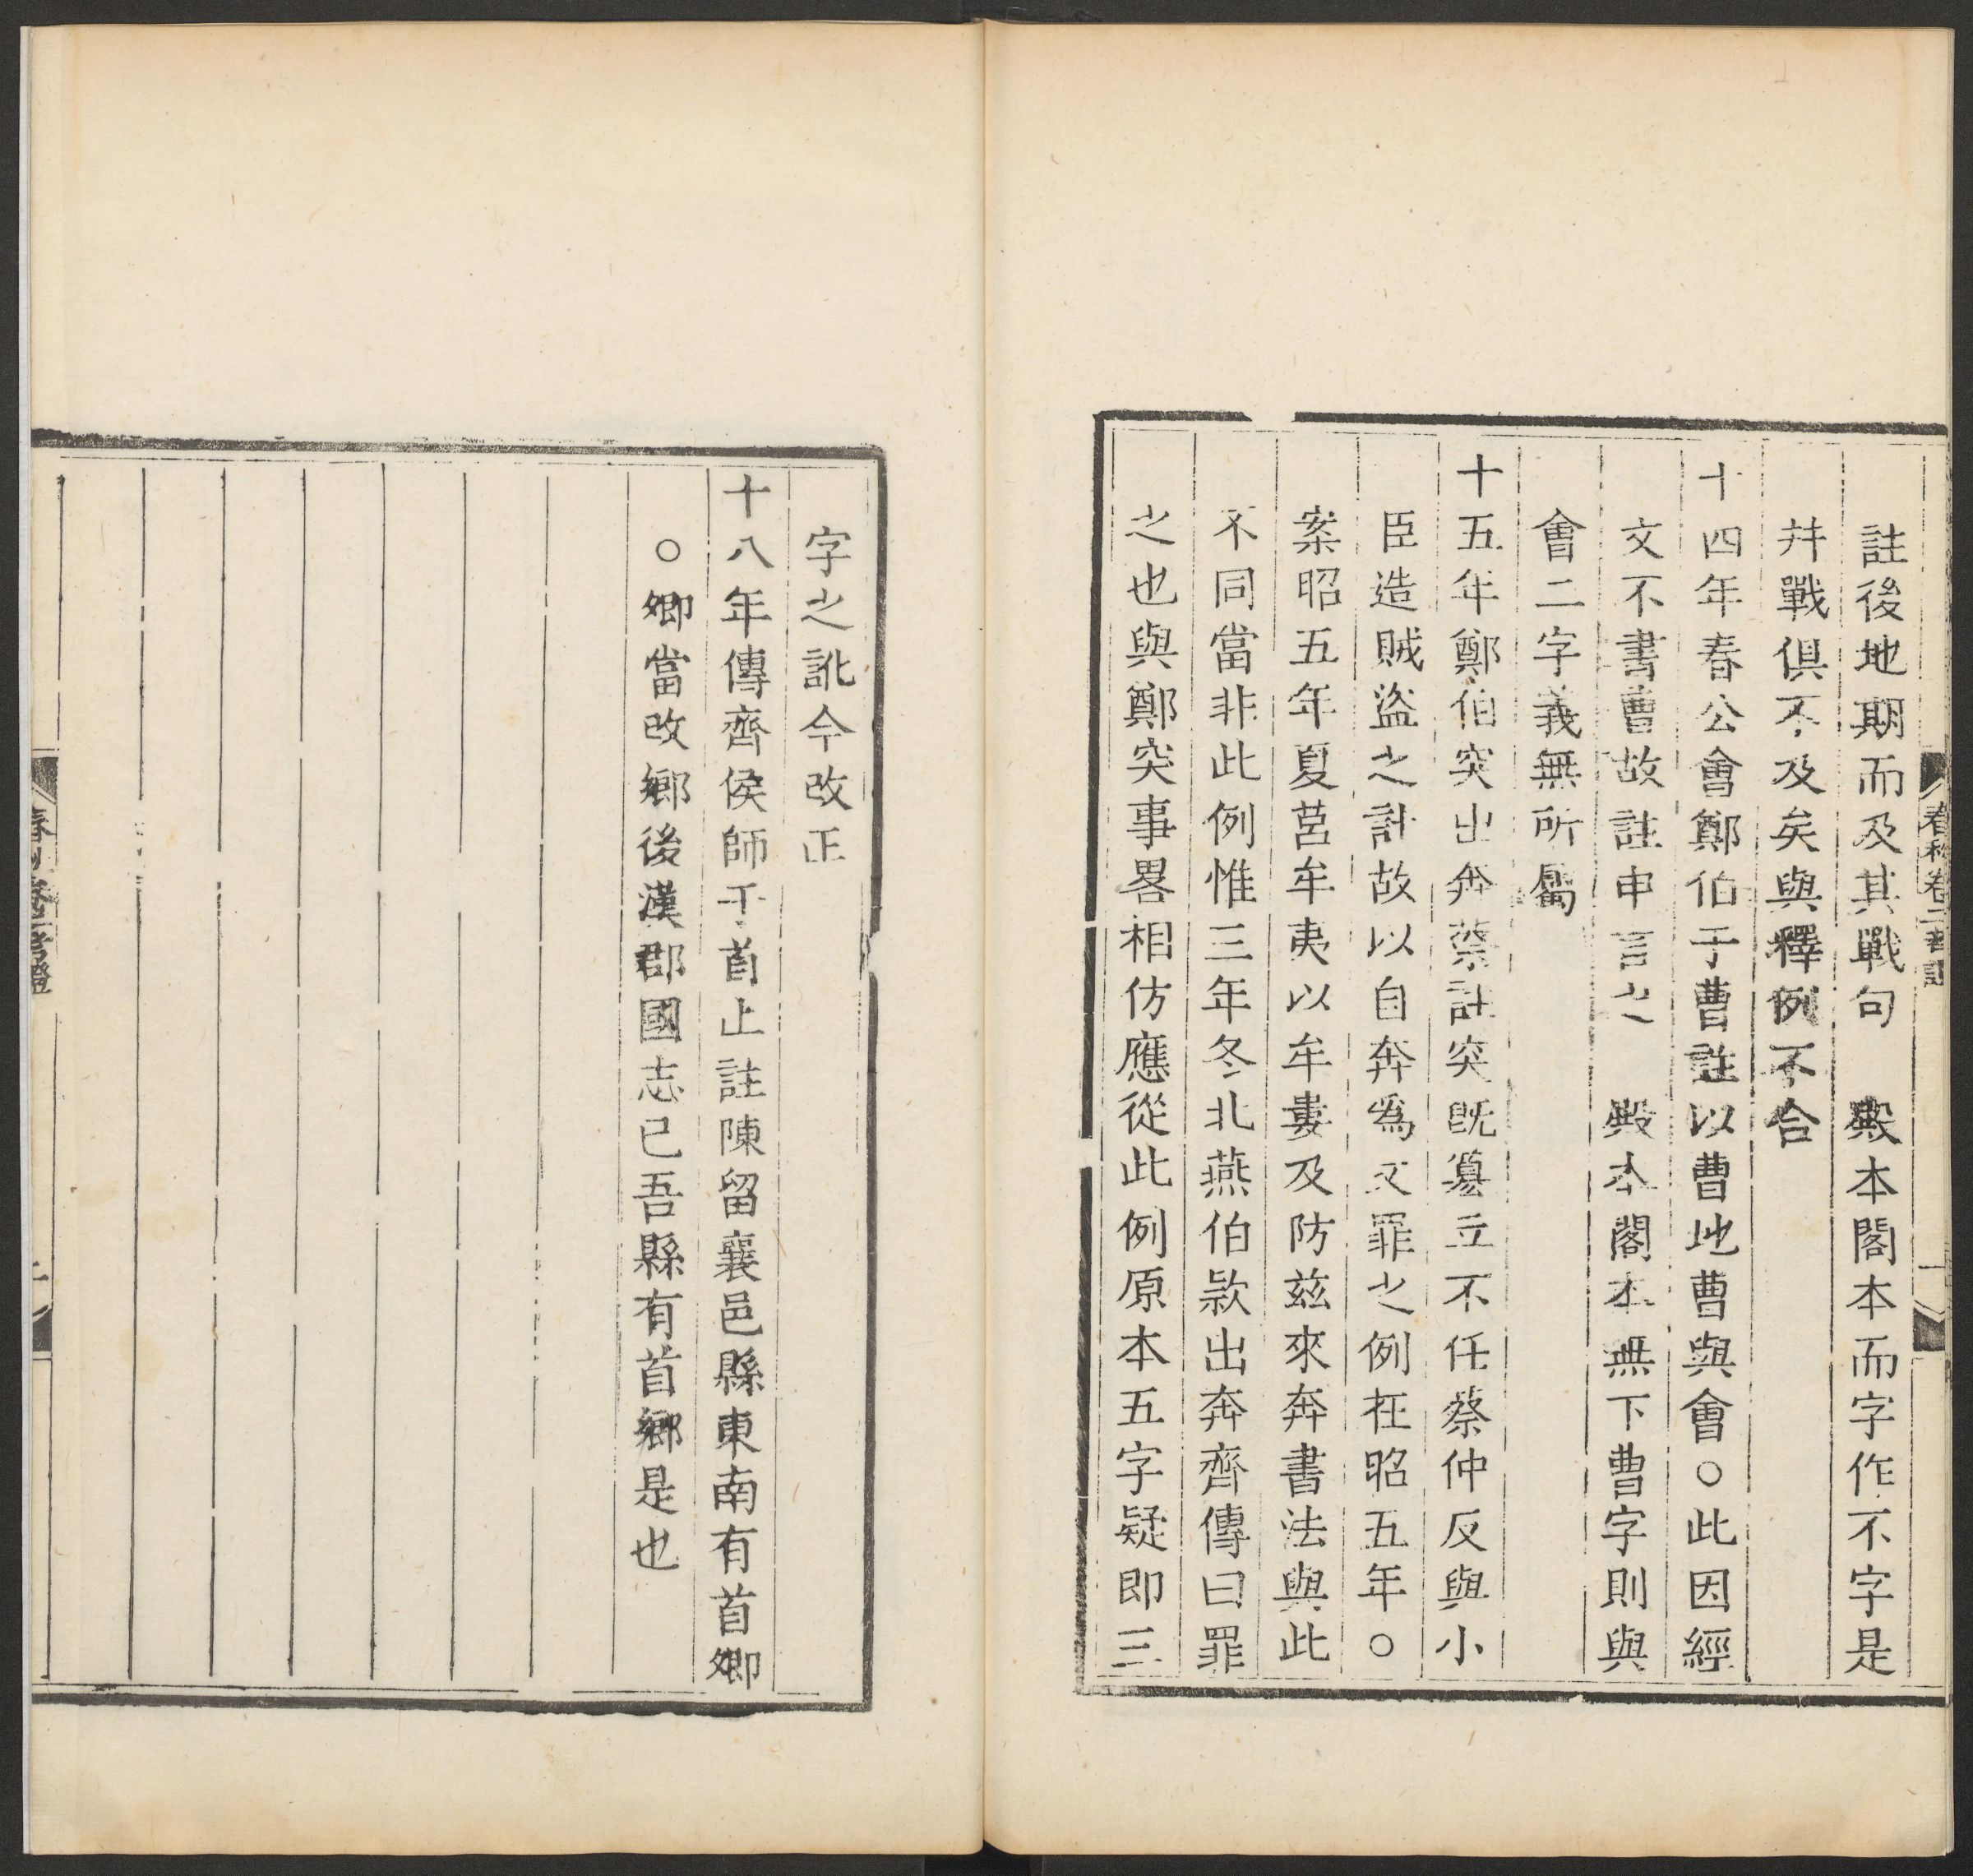 註後地期而及其戰句　殿本閣本而字作不字是
幷戰俱不及矣與釋例不合
十四年春公會鄭伯于曹註以曹地曹與會○此因經
文不書曹故註申言之　殿本閣本無下曹字則與
會二字義無所屬
十五年鄭伯突出奔蔡註突旣簒立不任蔡仲反與小
臣造賊盜之計故以自奔爲文罪之例在昭五年○
案昭五年夏莒牟夷以牟婁及防兹來奔書法與此
不同當非此例惟三年冬北燕伯款出奔齊傳曰罪
之也與鄭突事畧相仿應從此例原本五字疑即三
春秋卷二考證
一
字之訛今改正
十八年傳齊侯師于首止註陳留襄邑縣東南有首鄉
○鄉當改鄕後漢郡國志已吾縣有首鄕是也
春秋卷二考證